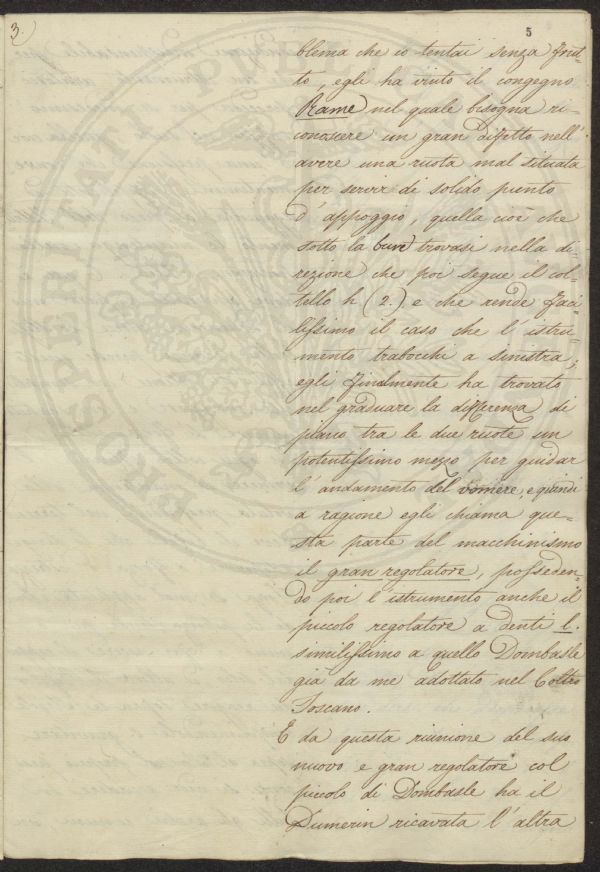 3.
5
blema che io tentai senza frut-
to, egli ha vinto il congegno
Rame nel quale bisogna ri-
conoscere un gran difetto nell'
avere una ruota mal situata
per servir di solido punto
d'appoggio, quella cioè che
sotto la bure trovasi nella di-
rezione che poi segue il col-
tello h (2.) e che rende faci-
lissimo il caso che l'istru-
mento trabocchi a sinistra;
egli finalmente ha trovato
nel graduare la differenza di
piano tra le due ruote un
potentissimo mezzo per guidar
l'andamento del vomere, e quindi
a ragione egli chiama que-
sta parte del macchinismo
il gran regolatore, posseden-
do poi l'istrumento anche il
piccolo regolatore a denti l.
similissimo a quello Dombasle
già da me adottato nel Coltro
Toscano.
E da questa riunione del suo
nuovo e gran regolatore col
piccolo di Dombasle ha il
Dumerin ricavata l'altra
PROSPERITATI PUBLICAE